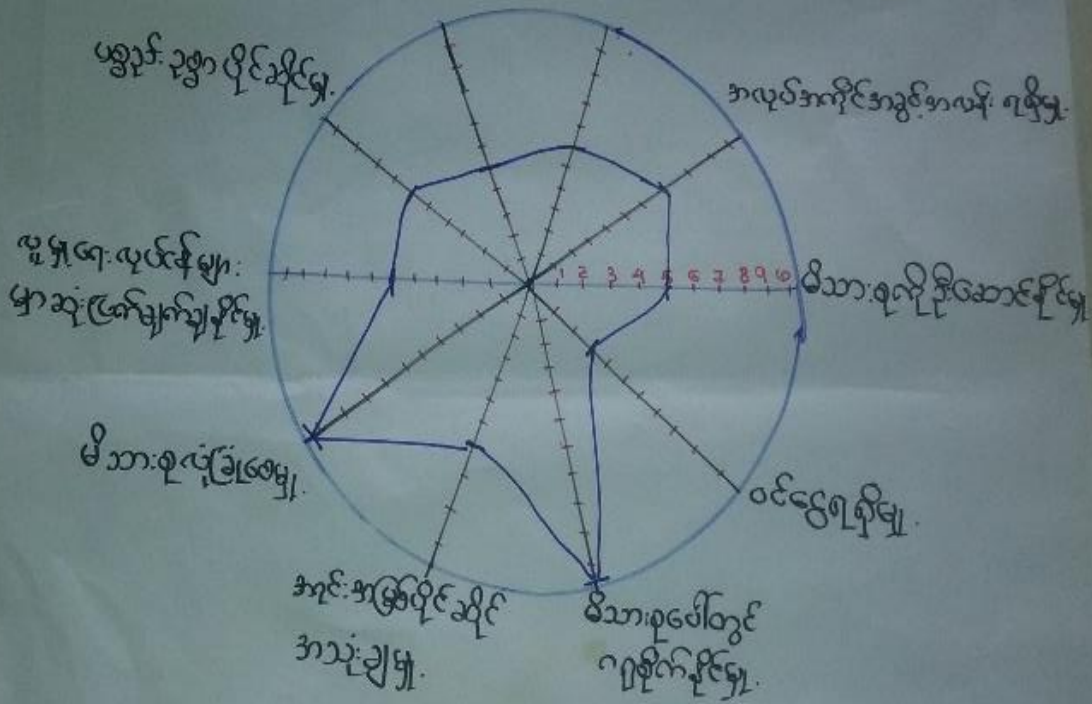 ပစ္စည်းဥစ္စာ ပိုင်ဆိုင်မှု.
အလုပ်အကိုင်အခွင့်အလမ်း ရရှိမှု.
လူမှုရေးလုပ်ငန်းများ
မှာဆုံးဖြတ်ချက်ချနိုင်မှု.
1 2 3 4 5 6 7 8 9 10
မိသားစုကိုဦးဆောင်နိုင်မှု
မိသားစုလုံခြုံစေမှု.
ဝင်ငွေရရှိမှု.
အရင်းအမြစ်ပိုင်ဆိုင်
အသုံးချမှု.
မိသားစုပေါ်တွင်
ဂရုစိုက်နိုင်မှု.